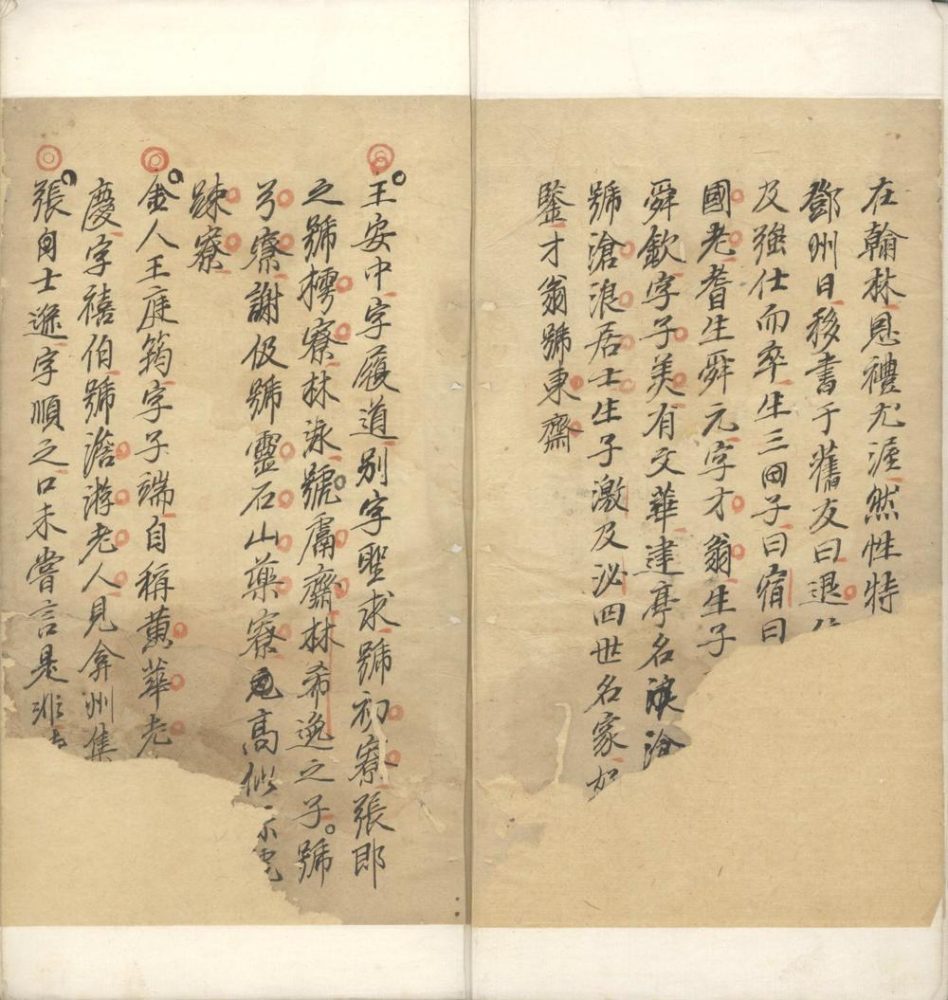 在翰林恩禮尤渥然性特
鄧州日移書于舊友曰退
及強仕而卒生三田子曰宿曰
國老耆生舜元字才翁生子
舜欽字子美有文華建亭名浪滄
號滄浪居士生子激及泌四世名家如
鑒才翁號東齋
王安中字履道別字聖求號初寮張即
之號樗寮林泳號鬳齋林希逸之子號
弓寮謝伋號靈石山藥寮高似孫
疎寮
金人王庭筠字子端自稱黄華老
慶字禧伯號澹游老人見弇州集
張自士遜字順之口未嘗言是非